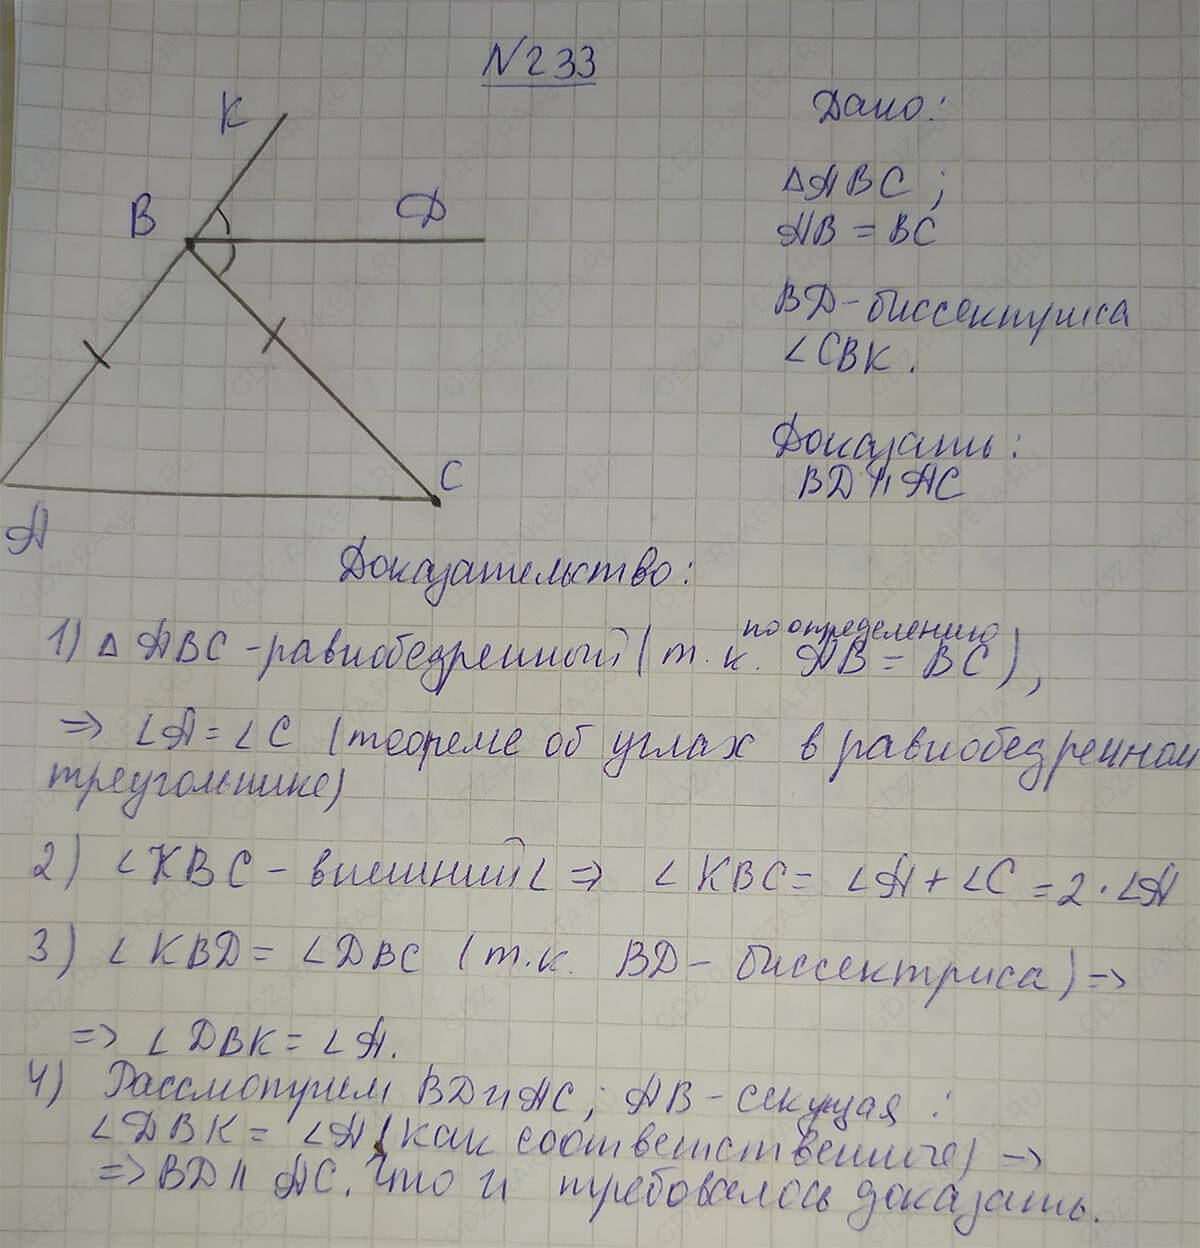 №233
К
В
Д
С
А
Дано:
△ABC;
AB = BC
BD - биссектриса
∠CBK.
Доказать:
BD ∥ AC
Доказательство:
по определению
1) △ ABC - равнобедренный (т.к. AB = BC),
=> ∠A = ∠C (теореме об углах в равнобедренном
треугольнике)
2) ∠KBC - внешний ∠ => ∠KBC = ∠A + ∠C = 2·∠A
3) ∠KBD = ∠DBC (т.к. BD - биссектриса) =>
=> ∠DBK = ∠A.
4) Рассмотрим BD и AC; AB - секущая:
∠DBK = ∠A (как соответственные) =>
=> BD ∥ AC. Что и требовалось доказать.
GDZ-RAKETA.RU